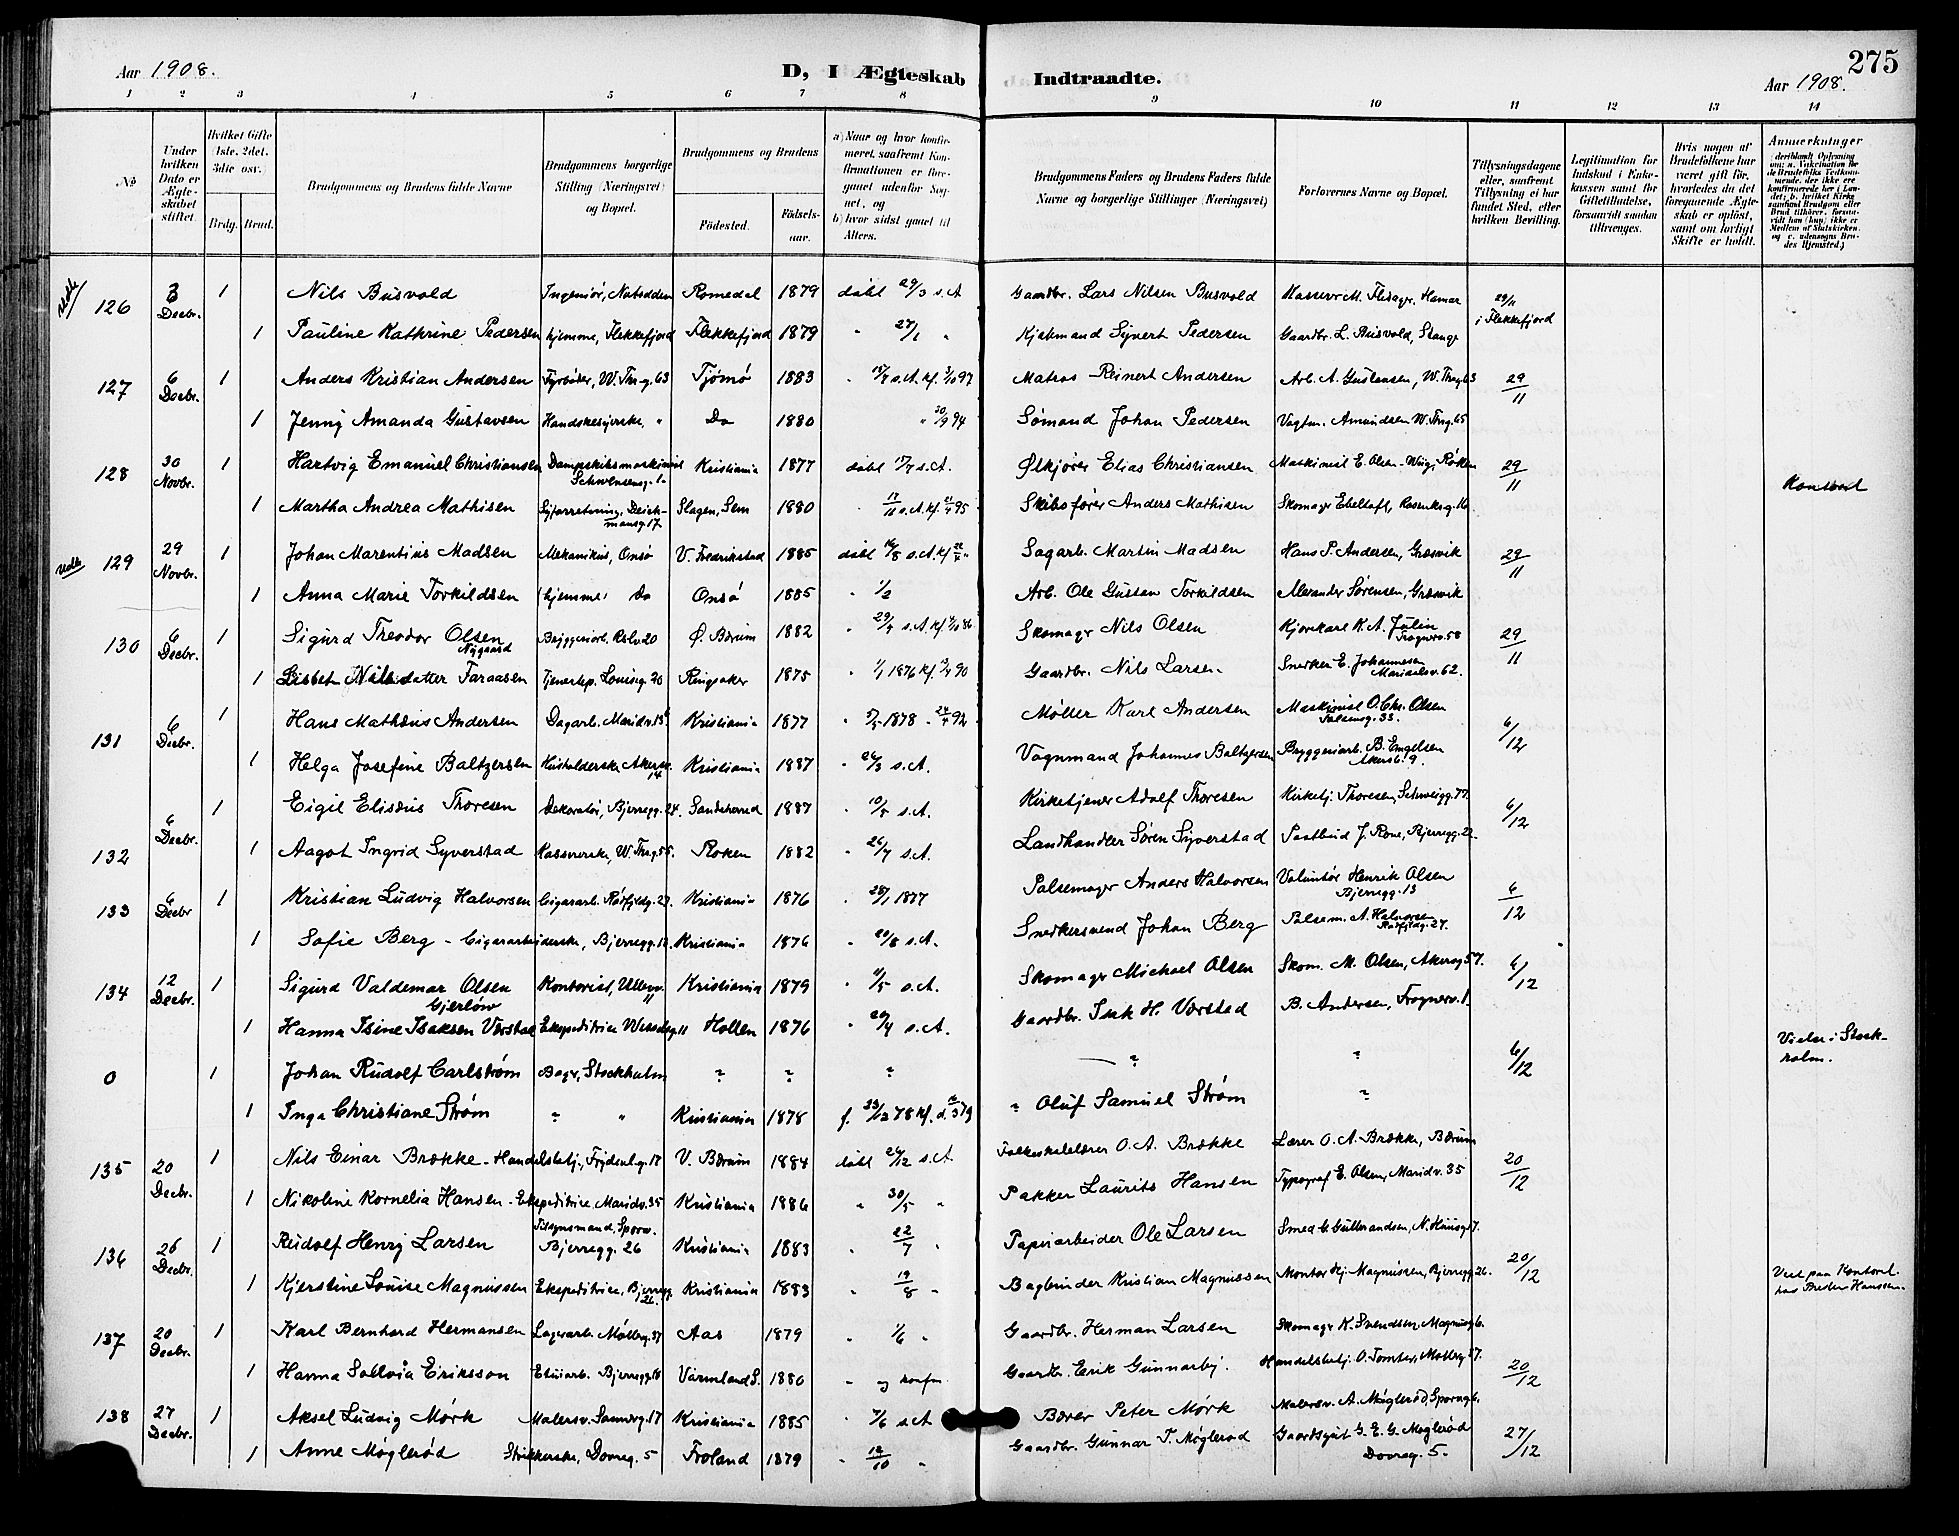 275
Aar 1908.
D, I Ægteskab Indtraadte.
Aar 1908.
1 2 3 4 5 6 7 8 9 10 11 12 13 14
No
Under hvilken Dato er Ægteskabet stiftet.
Hvilket Gifte (1ste, 2det, 3die osv.)
Brdg. Brud.
Brudgommens og Brudens fulde Navne
Brudgommens borgerlige Stilling (Næringsvei) og Bopæl.
Brudgommens og Brudens
Fødested.
Fødselsaar.
a) Naar og hvor konfirmeret, saafremt Konfirmationen er foregaaet udenfor Sognet, og
b) hvor sidst gaaet til Alters.
Brudgommens Faders og Brudens Faders fulde Navne og borgerlige Stillinger (Næringsvei)
Forlovernes Navne og Bopæl.
Tillysningsdagene eller, saafremt Tillysning ei har fundet Sted, efter hvilken Bevilling.
Legitimation for Indskud i Enkekassen samt for Giftetilladelse, forsaavidt saadan tiltrænges.
Hvis nogen af Brudefolkene har været gift før, hvorledes da det foregaaende Ægteskab er opløst, samt om lovligt Skifte er holdt.
Anmerkninger
126 3 Decbr. 1 Nils Busvold Ingeniør, Notodden Romedal 1879 døbt 29/3 s.A Gaardbr. Lars Nilsen Busvold Hamar 29/11 i Flekkefjord
1 Pauline Kathrine Pedersen hjemme, Flekkefjord Flekkefjord 1879 " 27/1 " Kjøbmand Syvert Pedersen Gaardbr. L. Busvold, Stange
127 6 Decbr. 1 Anders Kristian Andersen Fyrbøter, W. Thrg. 63 Tjømø 1883 s.A. kf. 3/10 97 Matros Reinert Andersen Arb. A. Gustavsen, W. Thrg. 63 29/11
1 Jenny Amanda Gustavsen Handskesyerske, " Do 1880 " 30/9 94 Sømand Johan Pedersen Vagtm. Amundsen W. Thrg. 65
128 30 Novbr. 1 Hartvig Emanuel Christiansen Dampskibsmaskinist Schwensensg. 1 Kristiania 1877 døbt 17/7 s.A. Ølkjører Elias Christiansen Maskinist E. Olsen-Wiig, Røken 29/11
1 Martha Andrea Mathisen Syforretning, Deichmansg. 17 Slagen, Sem 1880 s.A. kf. 95 Skibsfører Anders Mathisen Skomagr Ebeltoft, Rosenkrg. 16
129 29 Novbr. 1 Johan Marentius Madsen Mekanikus, Onsø V. Fredrikstad 1885 døbt 16/8 s.A. kf. Sagarb. Martin Madsen Hans P. Andersen, Græsvik 29/11
1 Anna Marie Torkildsen hjemme Do Onsø 1885 " 1/2 Arb. Ole Gustav Torkildsen Alexander Sørensen, Græsvik
130 6 Decbr. 1 Sigurd Theodor Olsen Nygaard Bryggeriarb. 20 Ø. Bærum 1882 " s.A. kf. Skomagr Nils Olsen Kjørekarl K. A. Julin Trognerv. 58 29/11
1 Lisbet Nilsdatter Faraasen Tjenestep. Louiseg. 20 Ringsaker 1875 " 1/1 1876 kf. 90 Gaardbr. Nils Larsen Snedker E. Johannesen Maridalsv. 62.
131 6 Decbr. 1 Hans Mathæus Andersen Dagarb. Maridv. Kristiania 1877 " 1878 - 92 Møller Karl Andersen Maskinist O. Chr. Olsen 33. 6/12
1 Helga Josefine Baltzersen Husholderske Akersv. 14 Kristiania 1887 " 26/3 s.A. Vognmand Johannes Baltzersen Bryggeriarb. B. Engelsen Akersb. 9.
132 6 Decbr. 1 Eigil Elisæus Thoresen Dekoratør, Bjerregg. 24. Sandeherred 1887 " s.A. Kirketjener Adolf Thoresen Kirketj. Thoresen, Schweigg. 77 6/12
1 Aagot Ingrid Syverstad Kassererske, W. Thrg. 55. Røken 1882 " 26/7 s.A. Landhandler Søren Syverstad Postbud J. Rone, Bjerregg. 22.
133 6 Decbr 1 Kristian Ludvig Halvorsen Cigararb. 27. Kristiania 1876 " 28/1 1877 Pølsemager Anders Halvorsen Volontør Henrik Olsen Bjerregg. 13 6/12
1 Sofie Berg - Cigararbeiderske, Bjerregg. 12. Kristiania 1876 " 20/8 s.A. Snedkersvend Johan Berg Pølsem. A. Halvorsen 27.
134 12 Decbr. 1 Sigurd Valdemar Olsen Gjerløw Kontorist, Ullevv. 11 Kristiania 1879 " s.A. Skomagr Michael Olsen Skom. M. Olsen, Akersg 57. 6/12
1 Hanna Isine Isaksen Værstad Ekspeditrice Wesselsg. 11 Hollen 1876 " 20/4 s.A. Gaardbr. Isak H. Værstad B. Andersen, Frognerv. 1.
0 1 Johan Rudolf Carlstrøm Bager, Stockholm ? ? ? ? ? 6/12 Vielse i Stockholm.
1 Inga Christiane Strøm ? " Kristiania 1878 f. 23/12 78 kf. ? Oluf Samuel Strøm ?
135 20 Decbr. 1 Nils Einar Brække - Handelsbetj., Frydenlg. 17 V. Bærum 1884 døbt 26/12 s.A Folkeskolelærer O. A. Brække Lærer O. A. Brække, Bærum 20/12
1 Nikoline Kornelia Hansen - Ekspeditrice, Maridv. 35 Kristiania 1886 " 30/5 " Pakker Laurits Hansen Typograf E. Olsen, Maridv. 35
136 26 Decbr. 1 Rudolf Henry Larsen Bjerregg. 26 Kristiania 1883 " 22/7 " Papirarbeider Ole Larsen Smed G. Gulbrandsen, N. 7. 20/12
1 Kjerstine Louise Magnussen Ekspeditrice, Bjerregg. 26. Kristiania 1883 " 19/8 " Bagbinder Kristian Magnussen Montør Hj. Magnussen, Bjerregg. 26. Viet paa Kontoret hos Præsten Hanssen.
137 20 Decbr. 1 Karl Bernhard Hermansen Lagerarb. Møllerg. 37 Aas 1879 " 1/6 " Gaardbr. Herman Larsen Skomagr K. Svendsen, Magnusg 6.
1 Hanna Sollvia Eriksson Etuiarb. Bjerregg. 18 Värmland S. 1880 " og konfm. Gaardbr. Erik Gunnarby. Handelsbetj. O. Tomter, Møllerg. 37. 20/12
138 27 Decbr. 1 Aksel Ludvig Mørk Malersv. Sannerg. 17 Kristiania 1885 " 7/6 s.A Bærer Peter Mørk Malersv. A. Møglerød, 6.
1 Anne Møglerød Strikkerske, Dovreg. 5 Froland 1879 " 12/10 " Gaardbr. Gunnar T. Møglerød Gaardsgut G. E. G. Møglerød Dovreg. 5. 27/12